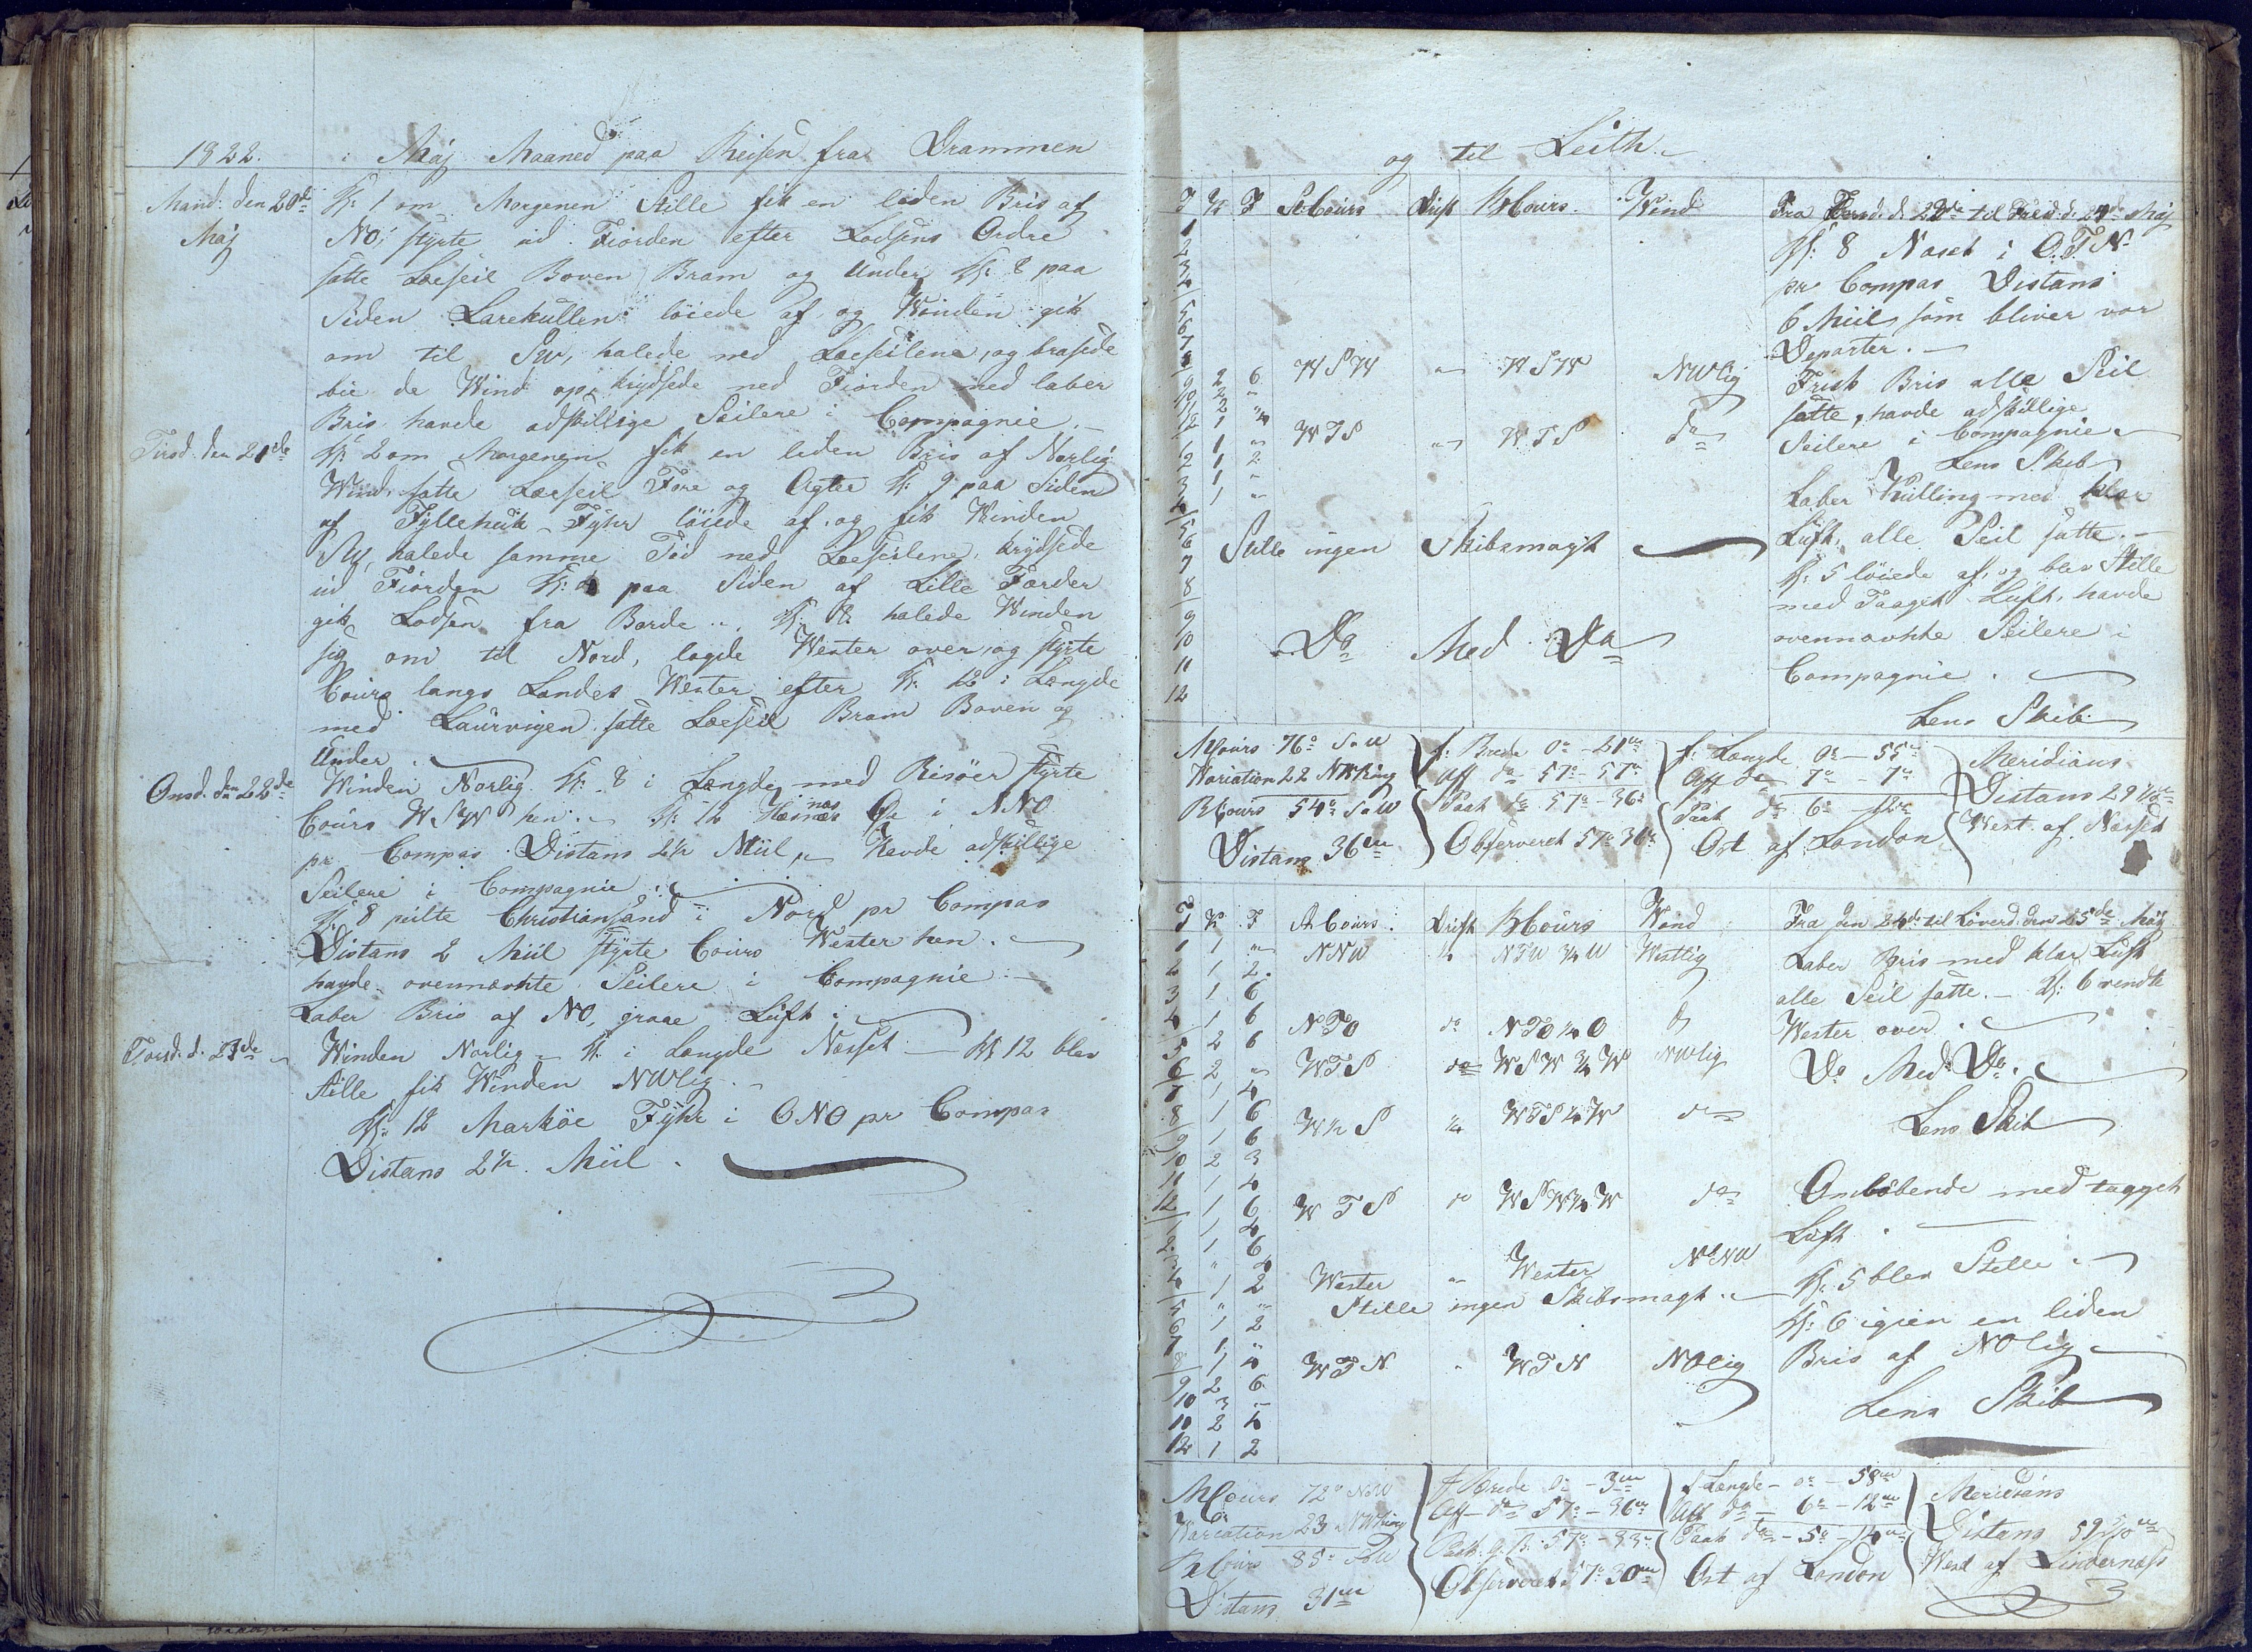 1822. i Maj Maaned paa Reisen fra Drammen
Mand: den 20de Kl: 1 om Morgenen Stille fik en liden Bris af
Maj NO; styrte ud Fiorden efter Lodsens Ordre
satte Læseil Boven Bram og Under Kl: 8 paa
Siden Larekullen løiede af og Winden gik
om til SW, halede ned Læseilene, og brasede
bie de Wind op, krydsede ned Fiorden med laber
Bris havde adskillige Seilere i Compagnie. —
Tirsd. den 21de Kl: 2 om Morgenen fik en liden Bris af Norlig
Wind, satte Læeseil Fore og Agter Kl: 9 paa Siden
af Fyllehuk Fyhr løiede af og fik Winden
SW, halede samme Tid ned Læeseilene, krydsede
ud Fiorden Kl: 4 paa Siden af Lille Færder
gik Lodsen fra Borde. Kl: 8 halede Winden
sig om til Nord, lagde Wester over, og styrte
Cours langs Landet Wester efter Kl: 12 i Længde
med Laurvigen satte Læeseil Bram Boven og
Under.
Onsd. den 22de Winden Norlig Kl: 8 i Længde med Risöer styrte
Cours WSW hen. Kl: 12 Øe i NNO
pr Compas Distans 2½ Miil, Havde adskillige
Seilere i Compagnie.
Kl: 8 peilte Christiansand i Nord pr Compas
Distans 2 Miil styrte Cours Wester hen.
havde ovennævnte Seilere i Compagnie. —
Laber Bris af NO, graae Luft.
Torsd. d. 23de Winden Norlig Kl: i Længde Nesset — Kl 12 blev
stille fik Winden NWlig.
Kl: 12 Markøe Fyhr i ONO pr Compas
Distans 2½ Miil.
og til Leith.
T K F St Cours Drift B Cours. Wind Fra d. 2 til Fred. d. 24de Maj
1
2 Kl: 8 Naset i O.T.N
3 pr Compas Distans
4
5 6 Miil som bliver vor
6
7 Departer. —
8
9 2 6 WSW " WSW NWlig Frisk Bris alle Seil
10 2 "
11 2 " satte, havde adskillige
12 1 4
1 1 " WTS " WTS do Seilere i Compagnie
2 1 2 Lens Skib
3 1 " Laber Kulling med klar
4 1 "
5 Luft, alle Seil satte. —
6 Stille ingen Skibsmagt
7 Kl: 5 løiede af, og blev Stille
8 med Taaget Luft, havde
9 ovennævnte Seilere i
10 Do Med Do
11 Compagnie.
12 Lens Skib
Cours 76° S.W f. Brede 0° - 21m f. Længde 0° - 55m Meridians
Variation 22 NWring Aff do 57° - 57m Aff do 7° - 7m Distans 29
B Cours 54° S.W Paak do 57° - 36m Paak do 6° - 12m West af Nesset
Distans 36m Observeret 57° 36m Ost af London
T K F St Cours. Drift B Cours Wind Fra den 24de til Löverd. den 25de Maj
1 1 " NNW ¼ NTW ¾ W Westlig Laber Bris med klar Luft
2 1 2
3 1 6 alle Seil satte. — Kl: 6 vendte
4 1 6 NTO do NTO ¼ O do Wester over.
5 2 6
6 2 " WTS do WSW ¾ W NWlig Do Med Do.
7 1 4
8 1 6 W ½ S ¼ WTS ¼ W do Lens Skib
9 1 6
10 2 3
11 1 4 Omløbende med tagget
12 1 6 WTS do WSW ¾ W do
1 1 4 Luft. —
2 1 6
3 " 4 Wester " Wester NNW Kl: 5 blev Stille.
4 1 2
5 " " Stille ingen Skibsmagt.
6 1 2 Kl: 6 igien en liden
7 1 "
8 1 4 WTN " WTN NOlig Bris af NOlig
9 2 6
10 3 "
10 2 4 Lens Skib
12 1 2
Cours 72° NW f Brede 0° - 3m f Længde - 0° - 58m Meridians
Variation 23 NWring Aff do 57° - 36m Aff do — 6° - 12m Distans 59
B Cours 85° SW Paak. g. B. 57° - 33m Paak do - 5° - 14m West af Lindernæss
Distans 31m Observeret 57° 30m Ost af London